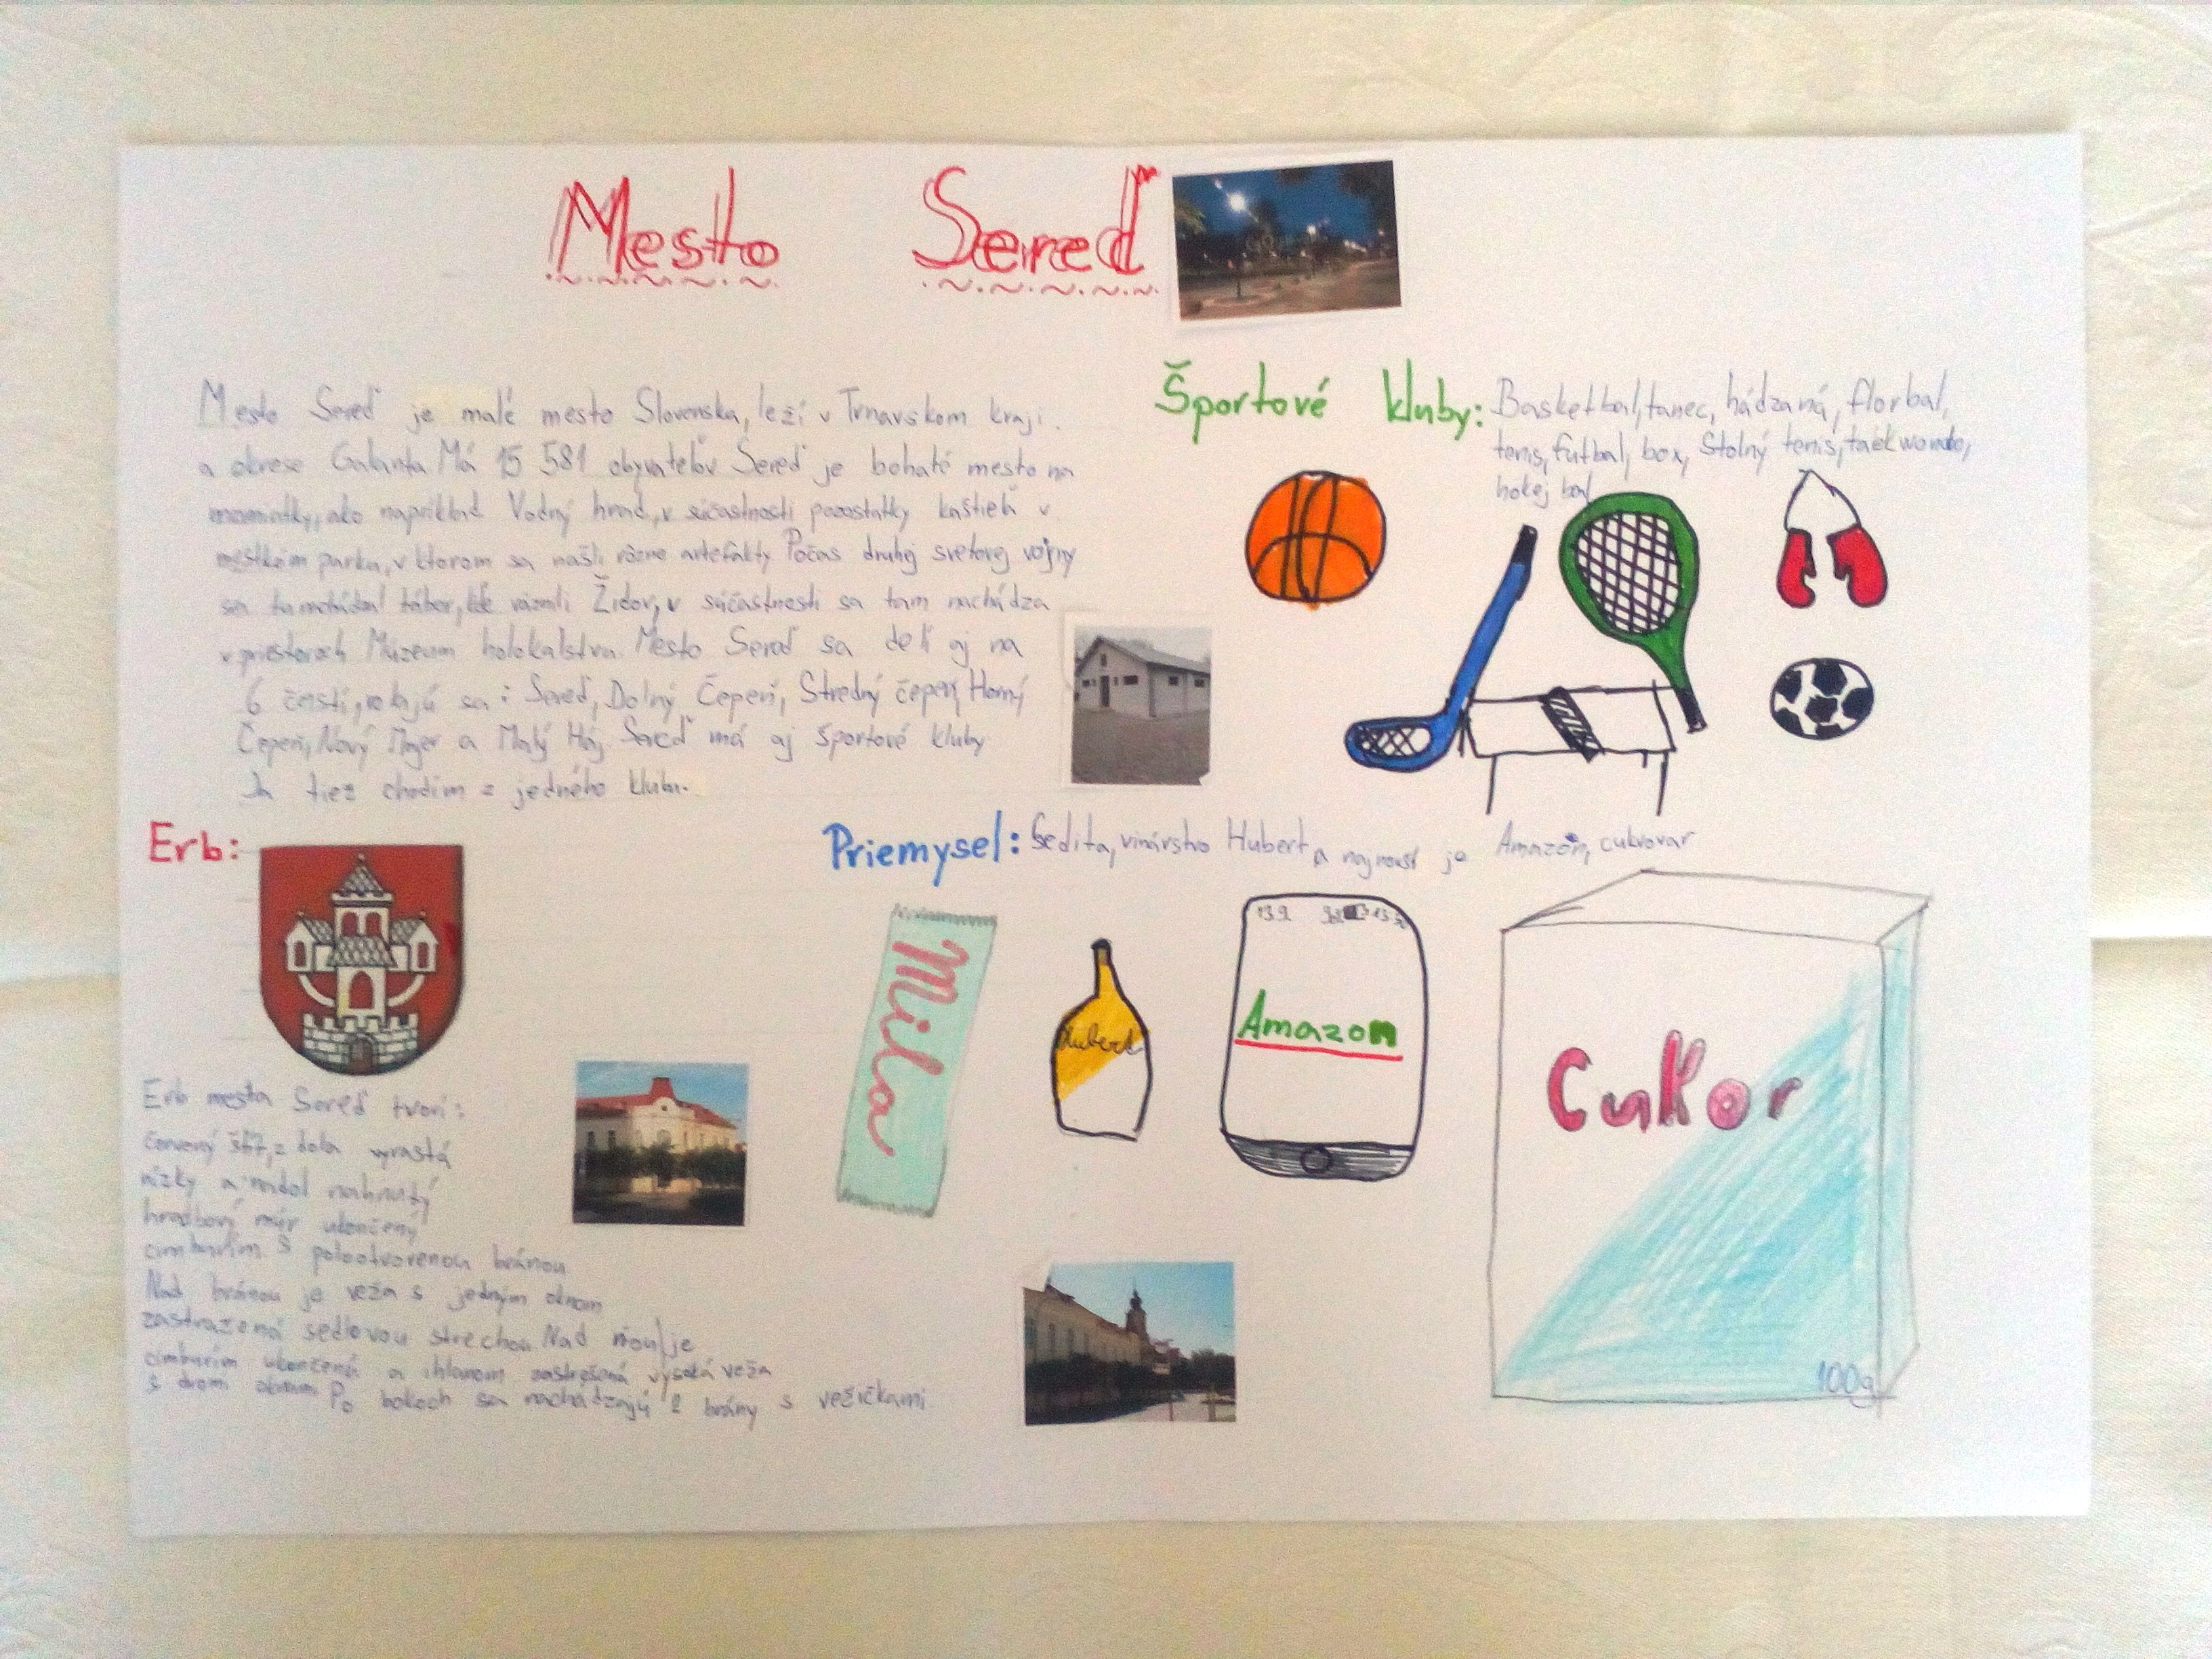 Mesto Sereď
Mesto Sereď je malé mesto Slovenska, leží v Trnavskom kraji.
a okrese Galanta Má 15 581 obyvateľov Sereď je bohaté mesto na
ako napríklad Vodný hrad, v súčastnosti pozostatky kaštieľa v
parku, v ktorom sa našli rôzne artefakty Počas druhej svetovej vojny
sa tábor, kde väznili Židov, v súčastnosti sa tam nachádza
v priestoroch Múzeum holokalstva. Mesto Sereď sa delí aj na
6 častí, volajú sa: Sereď, Dolný Čepeň, Stredný čepeň, Horný
Čepeň, Nový Majer a Malý Háj. Sereď má aj športové kluby
Ja tiez chodím z jedného klubu.
Športové kluby: Basketbal, tanec, hádzaná, florbal,
tenis, futbal, box, Stolný tenis, taekwondo,
hokej bal
Erb:
Erb mesta Sereď tvorí:
červený štít, z dola vyrastá
nízky a nadol nahnutý
hradbový múr ukončený
cimburím S polootvorenou bránou
Nad bránou je veža s jedným oknom
zastrašená sedlovou strechou Nad ňou je
cimburím ukončená a ihlanom zastrešená vysoká veža
s dvomi oknami Po bokoch sa nachádzajú 2 brány s vežičkami
Priemysel: Sedita, vinárstvo Hubert, a najnovší je Amazon, cukrovar
Mila
Hubert
13.9.
Amazon
Cukor
100g